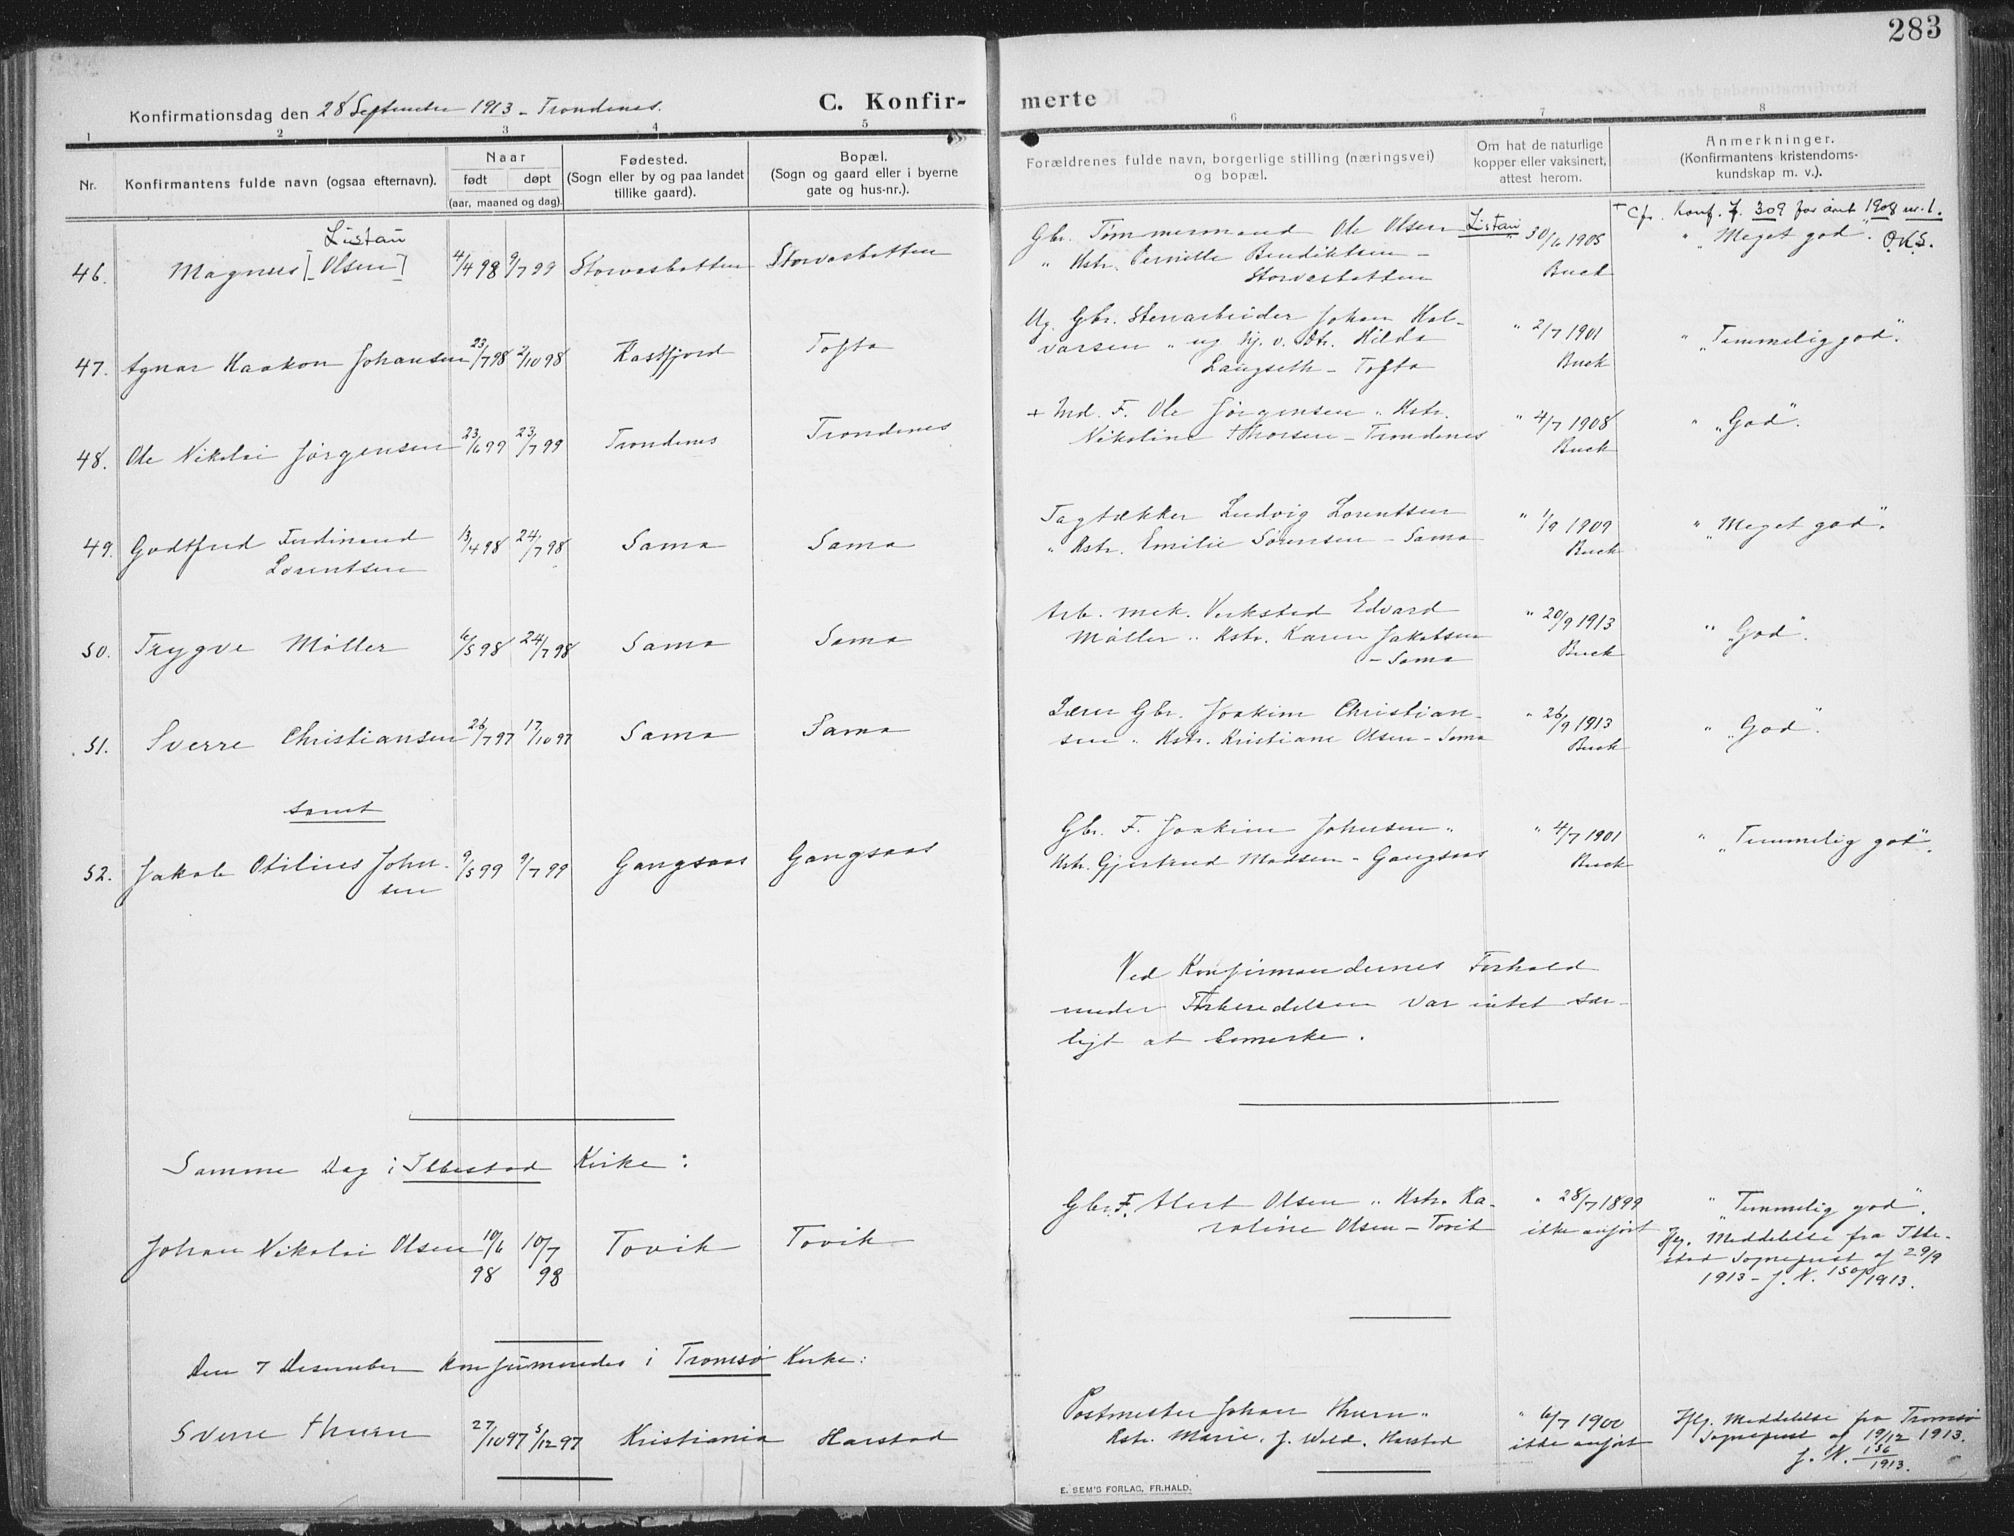 283
Konfirmationsdag den 28 September 1913 - Trondenes.
C. Konfir-
merte
1 2 3 4 5 6 7 8
Nr.
Konfirmantens fulde navn (ogsaa efternavn).
Naar
født døpt
(aar, maaned og dag).
Fødested.
(Sogn eller by og paa landet
tillike gaard).
Bopæl.
(Sogn og gaard eller i byerne
gate og hus-nr.).
Forældrenes fulde navn, borgerlige stilling (næringsvei)
og bopæl.
Om hat de naturlige
kopper eller vaksinert,
attest herom.
Anmerkninger.
(Konfirmantens kristendoms-
kundskap m. v.).
Cfr. Konf. f. 309 for året 1908 nr. 1.
O.K.S.
Listau
46. Magnus [Olsen] 4/4 98 9/7 99 Storvasbotten Storvasbotten
Gbr. Tømmermand Ole Olsen Listau " 30/6 1905 " "Meget god".
" Hstr. Pernille Bendiktsen - Buck
Storvasbotten
47. Agnar Haakon Johansen 23/7 98 2/10 98 Kastfjord Tofta
Ug. Gbr. Stenarbeider Johan Hal- " 2/7 1901 " "Temmelig god".
varsen " ug. Hj. v. Dtr. Hilda Buck
Langseth - Tofta
48. Ole Nikolai Jørgensen 23/6 99 23/7 99 Trondenes Trondenes
+ Ind. F. Ole Jørgensen " Hstr. " 4/7 1908 " "God".
Nikoline Thorsen - Trondenes Buck
49. Godtfred Ferdinand 13/4 98 24/7 98 Sama Sama
Lorentsen
Tagtækker Ludvig Lorentsen " 1/9 1909 " "Meget god".
" Hstr. Emilie Sørensen - Sama Buck
50. Trygve Møller 6/5 98 24/7 98 Sama Sama
Arb. mek. Verksted Edvard " 20/9 1913 " "God".
Møller " Hstr. Karen Jakobsen Buck
- Sama
51. Sverre Christiansen 26/7 97 17/10 97 Sama Sama
Gbr. Joakim Christian- " 26/9 1913 " "God".
sen " Hstr. Kristiane Olsen - Sama Buck
samt
52. Jakob Otilius John- 9/5 99 9/7 99 Gangsaas Gangsaas
sen
Gbr. F. Joakim Johnsen " " 4/7 1901 " "Temmelig god".
Hstr. Gjertrud Madsen - Gangsaas Buck
Ved Konfirmandernes Forhold
under Forberedelsen var intet sær-
ligt at bemerke.
Samme Dag i Ibbestad Kirke:
Johan Nikolai Olsen 10/6 98 10/7 98 Tovik Tovik
Gbr. F. Albert Olsen " Hstr. Ka- " 28/7 1899 " "Temmelig god".
roline Olsen - Tovik ikke anført Iflg. Meddelelse fra Ibbe-
stad Sogneprest af 29/9
1913 - J. N. 150/1913.
Den 7 Desember konfirmeredes i Tromsø Kirke:
Sverre Thurn 27/10 97 5/12 97 Kristiania Harstad
Postmester Johan Thurn " " 6/7 1900 Iflg. Meddelelse fra Tromsø
Hstr. Marie, f. Wold, Harstad ikke anført Sogneprest af 19/12 1913.
J. N. 156/1913.
E. SEM'S FORLAG, FR.HALD.